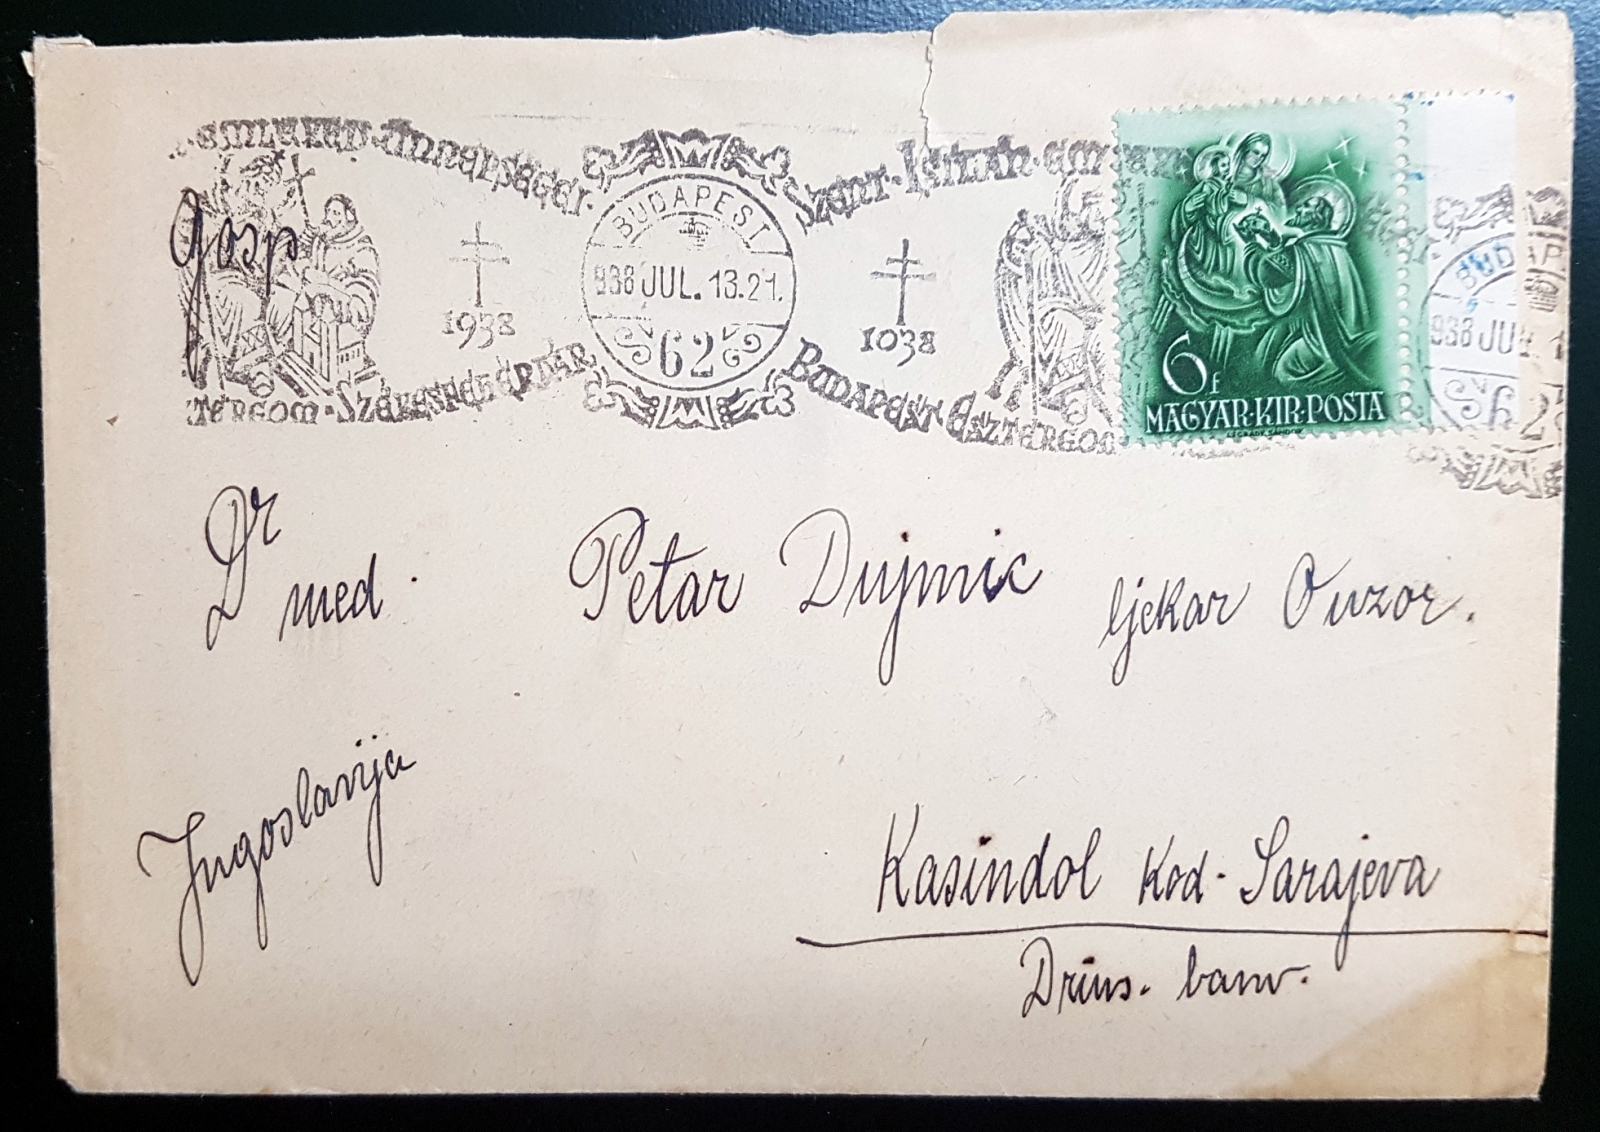 Szent·István·emlék
ünnepségei
BUDAPEST
938 JUL. 13.21.
62
1938
1038
BUDAPEST·ESZTERGOM·SZÉKESFEHÉRVÁR
6f
MAGYAR·KIR·POSTA
BUDAP
938 JU
62
Gosp
Dr med. Petar Dujmic ljekar Ouzor.
Jugoslavija
Kasindol kod. Sarajeva
Drins. banov.